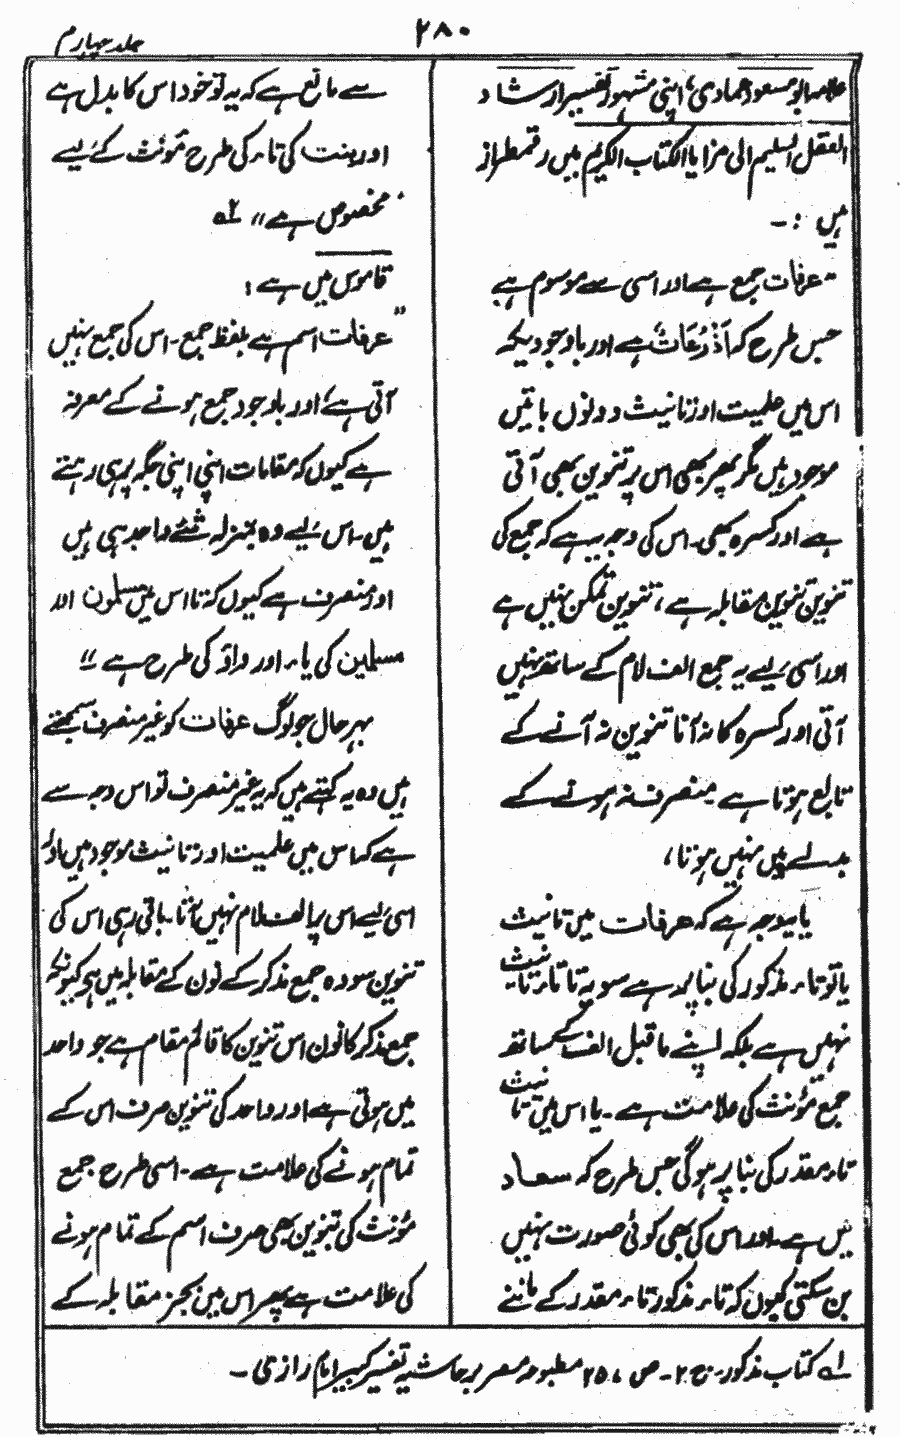 جلد چہارم
۲۸۰
علامہ ابو مسعود عمادی، اپنی مشہور تفسیر ارشاد
العقل السلیم الی مزایا الکتاب الکریم میں رقمطراز
ہیں :-
”عرفات جمع ہے اور اسی سے موسوم ہے
جس طرح کہ اَذْرُعَات ہے اور باوجودیکہ
اس میں علمیت اور تانیث دونوں باتیں
موجود ہیں مگر پھر بھی اس پر تنوین بھی آتی
ہے اور کسرہ بھی۔ اس کی وجہ یہ ہے کہ جمع کی
تنوین تنوین مقابلہ ہے، تنوین تمکن نہیں ہے
اور اسی لیے یہ جمع الف لام کے ساتھ نہیں
آتی اور کسرہ کا نہ آنا تنوین نہ آنے کے
تابع ہوتا ہے منصرف نہ ہونے کے
بدلے میں نہیں ہوتا،
یا یہ وجہ ہے کہ عرفات میں تانیث
یا تو تاء مذکور کی بنا پر ہے سو یہ تا تاء تانیث
نہیں ہے بلکہ اپنے ماقبل الف کے ساتھ
جمع مؤنث کی علامت ہے۔ یا اس میں تانیث
تاء مقدر کی بنا پر ہوگی جس طرح کہ سعاد
میں ہے۔ اور اس کی بھی کوئی صورت نہیں
بن سکتی کیوں کہ تاء مذکور تاء مقدر کے ماننے
سے مانع ہے کہ یہ تو خود اس کا بدل ہے
اور بنت کی تاء کی طرح مؤنث کے لیے
مخصوص ہے“ ۱ے
قاموس میں ہے :
”عرفات اسم ہے بلفظ جمع۔ اس کی جمع نہیں
آتی ہے، اور باوجود جمع ہونے کے معرفہ
ہے کیوں کہ مقامات اپنی اپنی جگہ پر ہی رہتے
ہیں۔ اس لیے وہ بمنزلہ شئے واحد ہی ہیں
اور منصرف ہے کیوں کہ تا اس میں مسلمون اور
مسلمین کی یاء اور واؤ کی طرح ہے“
بہر حال جو لوگ عرفات کو غیر منصرف سمجھتے
ہیں وہ یہ کہتے ہیں کہ یہ غیر منصرف تو اس وجہ سے
ہے کہ اس میں علمیت اور تانیث موجود ہیں اور
اسی لیے اس پر الف لام نہیں آتا۔ باقی رہی اس کی
تنوین سو وہ جمع مذکر کے نون کے مقابلہ میں ہے کیونکہ
جمع مذکر کا نون اس تنوین کا قائم مقام ہے جو واحد
میں ہوتی ہے اور واحد کی تنوین صرف اس کے
تمام ہونے کی علامت ہے۔ اسی طرح جمع
مؤنث کی تنوین بھی صرف اسم کے تمام ہونے
کی علامت ہے پھر اس میں بجز مقابلہ کے
۱ے کتاب مذکور۔ ج ۲۔ ص ، ۲۵ مطبوعہ مصر بر حاشیہ تفسیر کبیر امام رازی۔